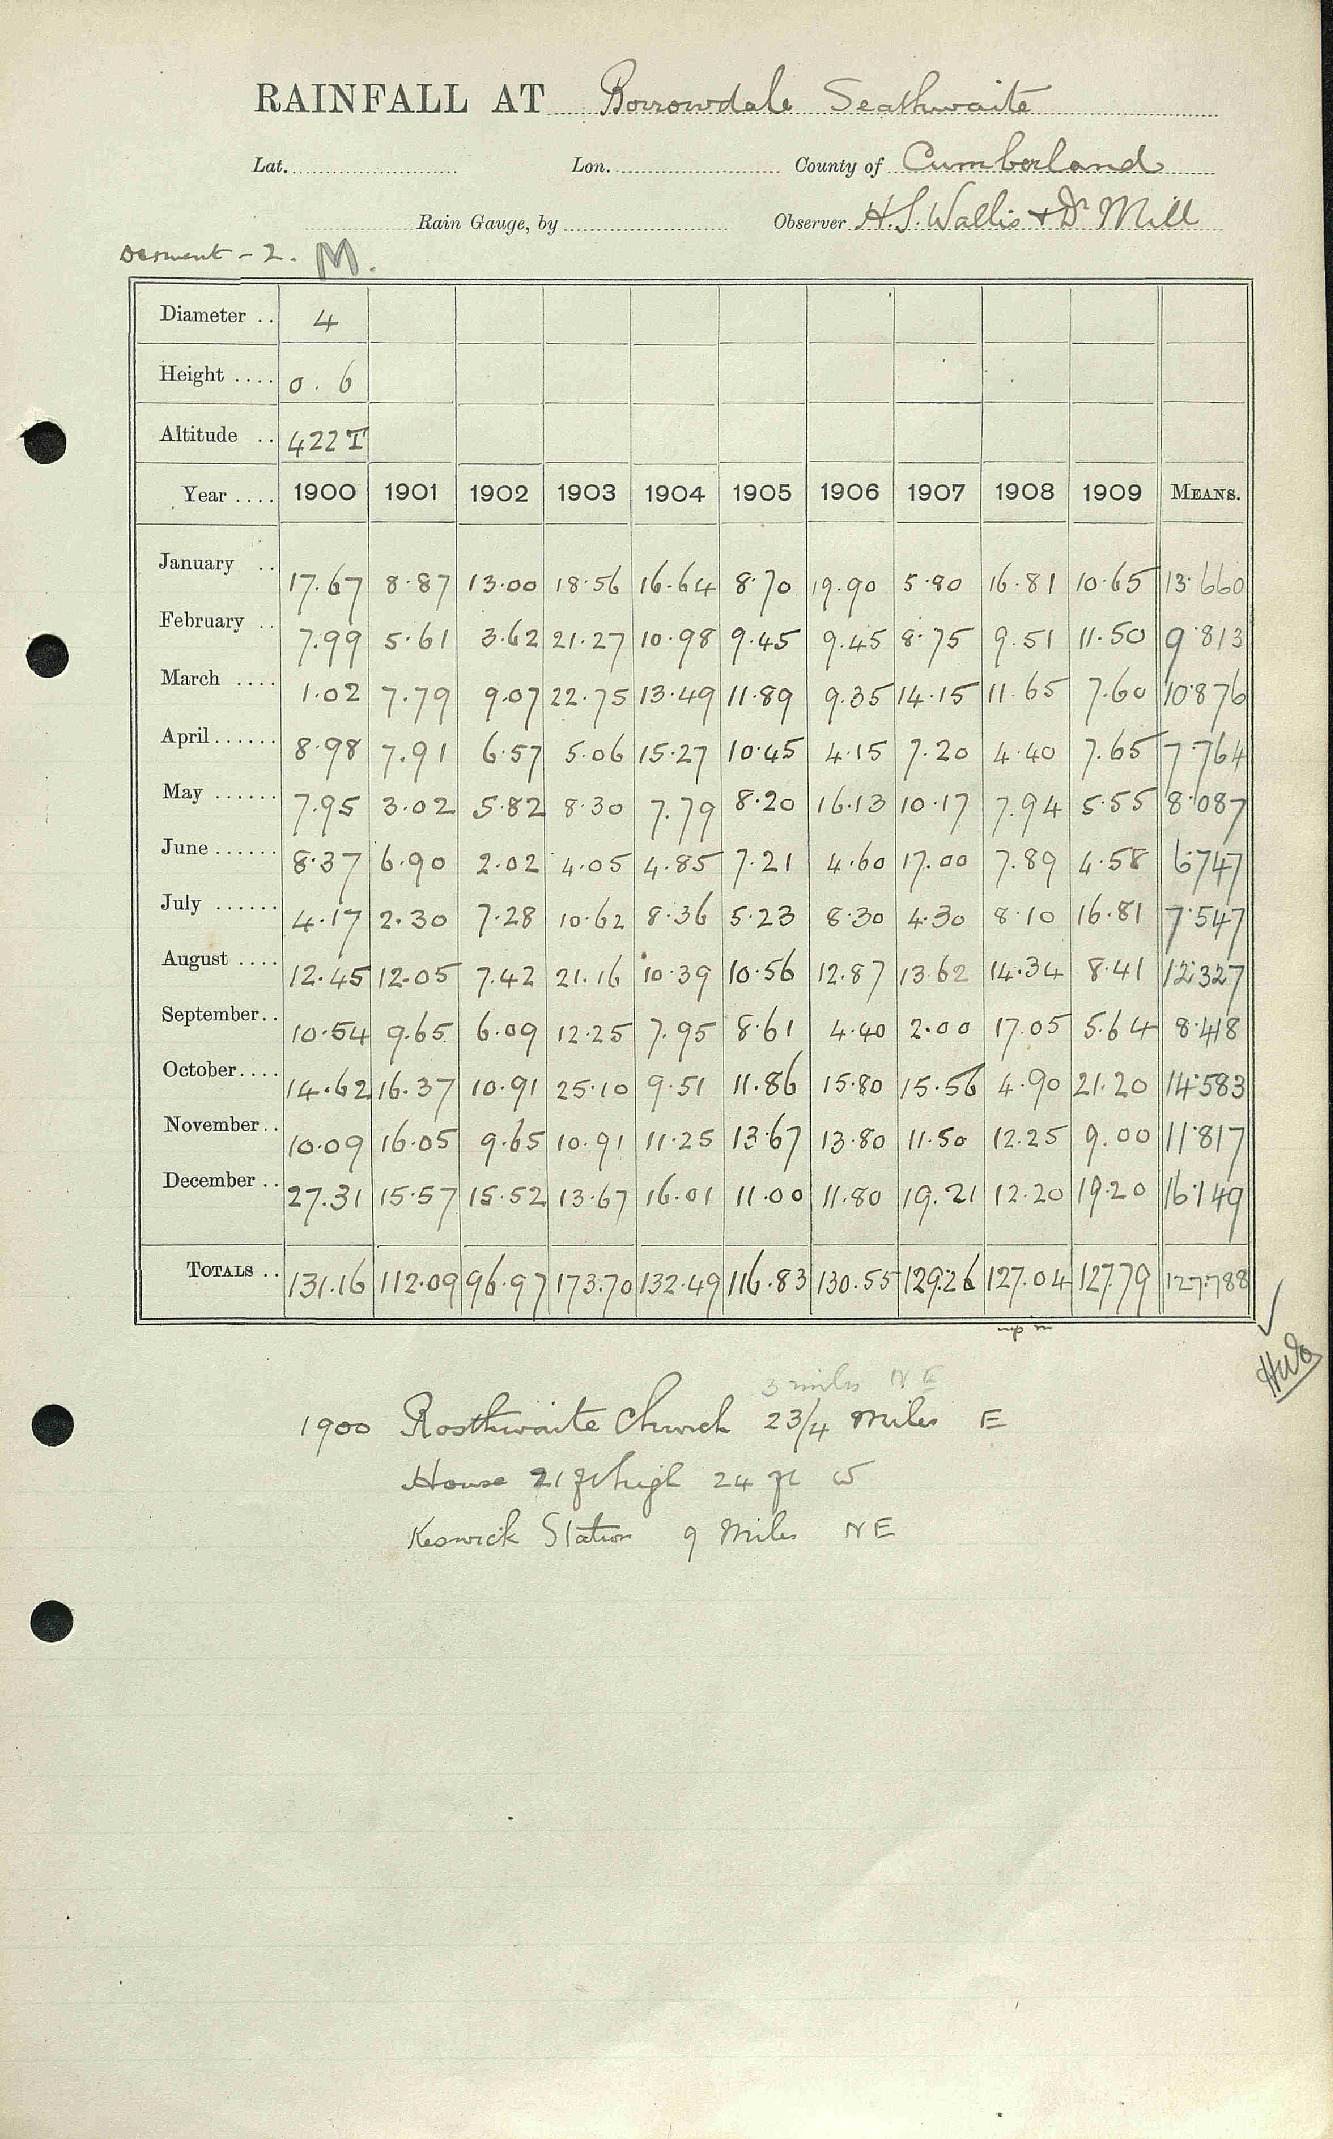 RAINFALL AT Borrowdale Seathwaite
Lat. Lon. County of Cumberland
Rain Gauge, by Observer H.S. Wallis & Dr Mill
Derwent - 2. M.
Diameter .. 4
Height .... 0.6
Altitude .. 422 T
Year .... 1900 1901 1902 1903 1904 1905 1906 1907 1908 1909 MEANS.
January .. 17.67 8.87 13.00 18.56 16.64 8.70 19.90 5.80 16.81 10.65 13.660
February .. 7.99 5.61 3.62 21.27 10.98 9.45 9.45 8.75 9.51 11.50 9.813
March .... 1.02 7.79 9.07 22.75 13.49 11.89 9.35 14.15 11.65 7.60 10.876
April...... 8.98 7.91 6.57 5.06 15.27 10.45 4.15 7.20 4.40 7.65 7.764
May ...... 7.95 3.02 5.82 8.30 7.79 8.20 16.13 10.17 7.94 5.55 8.087
June...... 8.37 6.90 2.02 4.05 4.85 7.21 4.60 17.00 7.89 4.58 6.747
July ...... 4.17 2.30 7.28 10.62 8.36 5.23 8.30 4.30 8.10 16.81 7.547
August .... 12.45 12.05 7.42 21.16 10.39 10.56 12.87 13.62 14.34 8.41 12.327
September.. 10.54 9.65 6.09 12.25 7.95 8.61 4.40 2.00 17.05 5.64 8.418
October.... 14.62 16.37 10.91 25.10 9.51 11.86 15.80 15.56 4.90 21.20 14.583
November.. 10.09 16.05 9.65 10.91 11.25 13.67 13.80 11.50 12.25 9.00 11.817
December .. 27.31 15.57 15.52 13.67 16.01 11.00 11.80 19.21 12.20 19.20 16.149
TOTALS .. 131.16 112.09 96.97 173.70 132.49 116.83 130.55 129.26 127.04 127.79 127.788
3 miles NE
1900 Rosthwaite Church 2 3/4 Miles E
House 21 ft high 24 ft W
Keswick Station 9 Miles NE